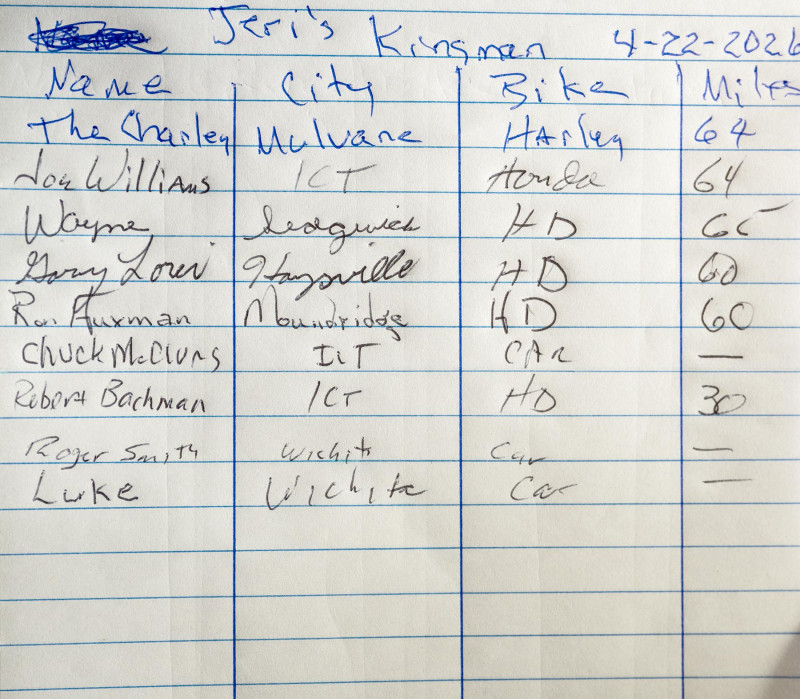 Jeri's Kingman 4-22-2026
Name City Bike Miles
The Charley Mulvane Harley 64
Joe Williams ICT Honda 64
Wayne Sedgwick HD 65
Gary Haysville HD 60
Ron Moundridge HD 60
Chuck McClung ICT CAR —
Robert Bachman ICT HD 30
Roger Smith Wichita Car —
Luke Wichita Car —